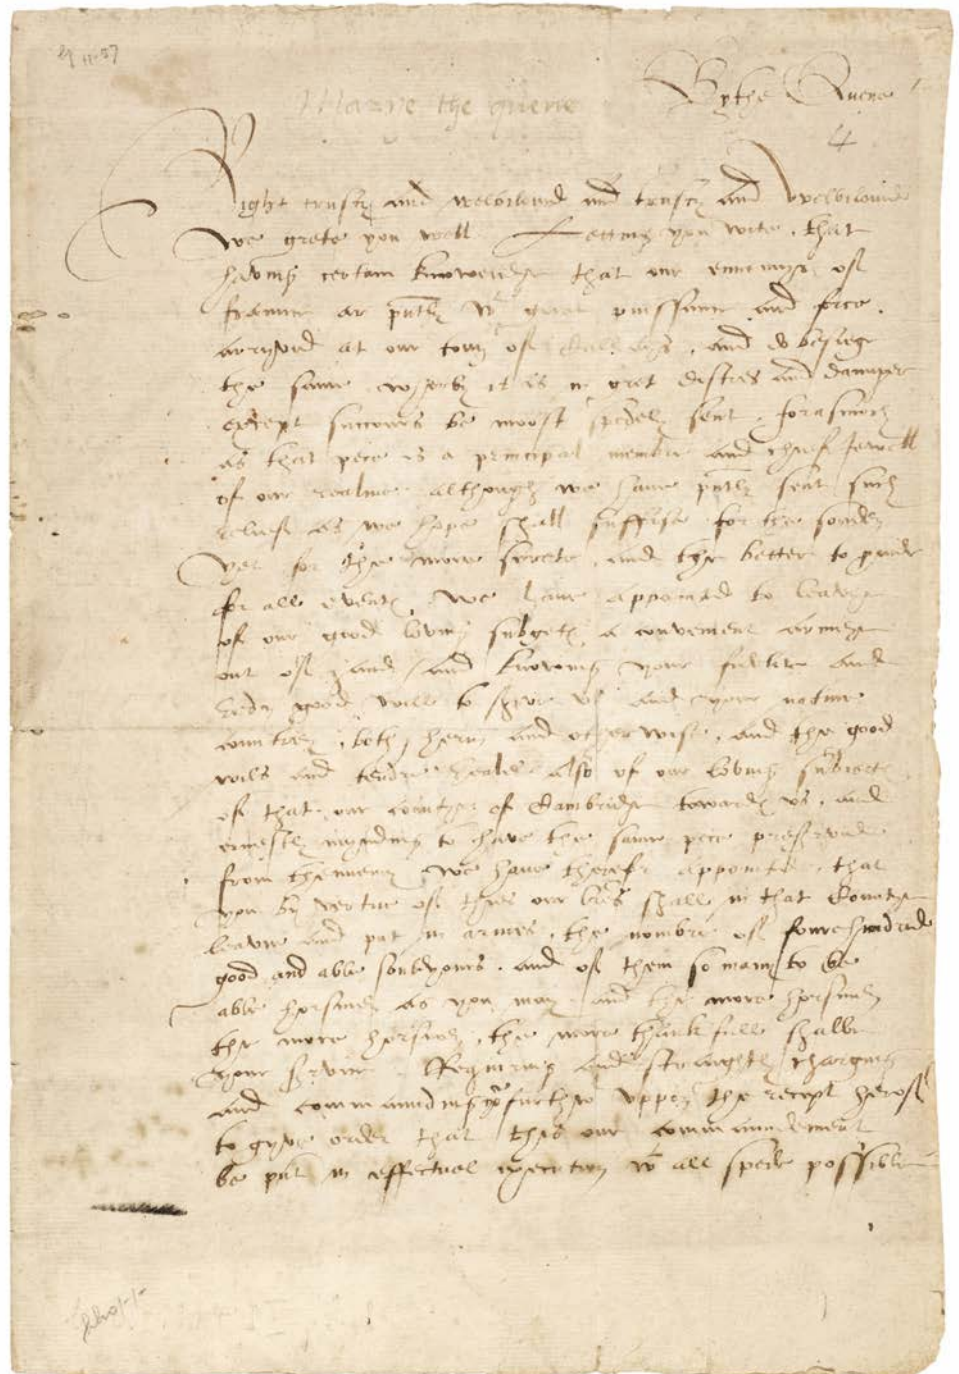 By the Quene
Marye the quene
4
Right trusty and welbeloued and trusty and welbeloued
We grete you well Letting you wite, that
having certain knowledge that our ennemyes of
fraunce ar pntly wt great puissance and force.
arryved at our town of Callays, and do besiege
the same, wherby it is in gret distres and daunger
except succours be moost spedely sent, forasmoch
as that pece is a principal membre and chief Jewell
of our realme although we have pntly sent such
relief as we hope shall suffise for the soden
Yet for the more suretie, and the better to pvide
for all events, We have appointed to leavye
of our good loving subgets a convenient armye
out of hand, and knowing your fidelite and
redy good will to serve us and your native
countrey, both herin and otherwise, and the good
wils and tendre zeales also of our loving subiects
of that our countye of Cambridge towards us, and
ernestly mynding to have the same pece preserved
from thennemy We have therefr appointed, that
you by vertue of thies our lres shall in that Countye
leavie and put in armes, the nombre of fowre hundred
good and able souldyours. and of them so many to be
able horsmen as you may and the more horsmen
the more horsmen, the more thankfull shalbe
your service. Requiring and straightly charging
and commaunding yo further uppon the receipt herof
to gyve order that this our commaundement
be put in effectual execution wt all spede possible